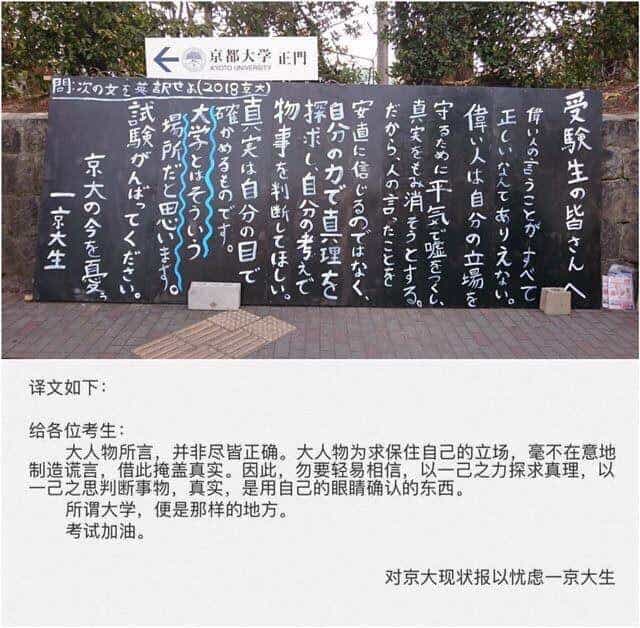 京都大学 正門
KYOTO UNIVERSITY
問:次の文を英訳せよ(2018京大)
受験生の皆さんへ
偉い人の言うことがすべて
正しいなんてありえない。
偉い人は自分の立場を
守るために平気で嘘をつくし、
真実をもみ消そうとする。
だから、人の言ったことを
安直に信じるのではなく、
自分の力で真理を
探求し、自分の考えで
物事を判断してほしい。
真実は自分の目で
確かめるものです。
大学とはそういう
場所だと思います。
試験がんばってください。
京大の今を憂う
一京大生
译文如下：
给各位考生：
大人物所言，并非尽皆正确。大人物为求保住自己的立场，毫不在意地
制造谎言，借此掩盖真实。因此，勿要轻易相信，以一己之力探求真理，以
一己之思判断事物，真实，是用自己的眼睛确认的东西。
所谓大学，便是那样的地方。
考试加油。
对京大现状报以忧虑一京大生